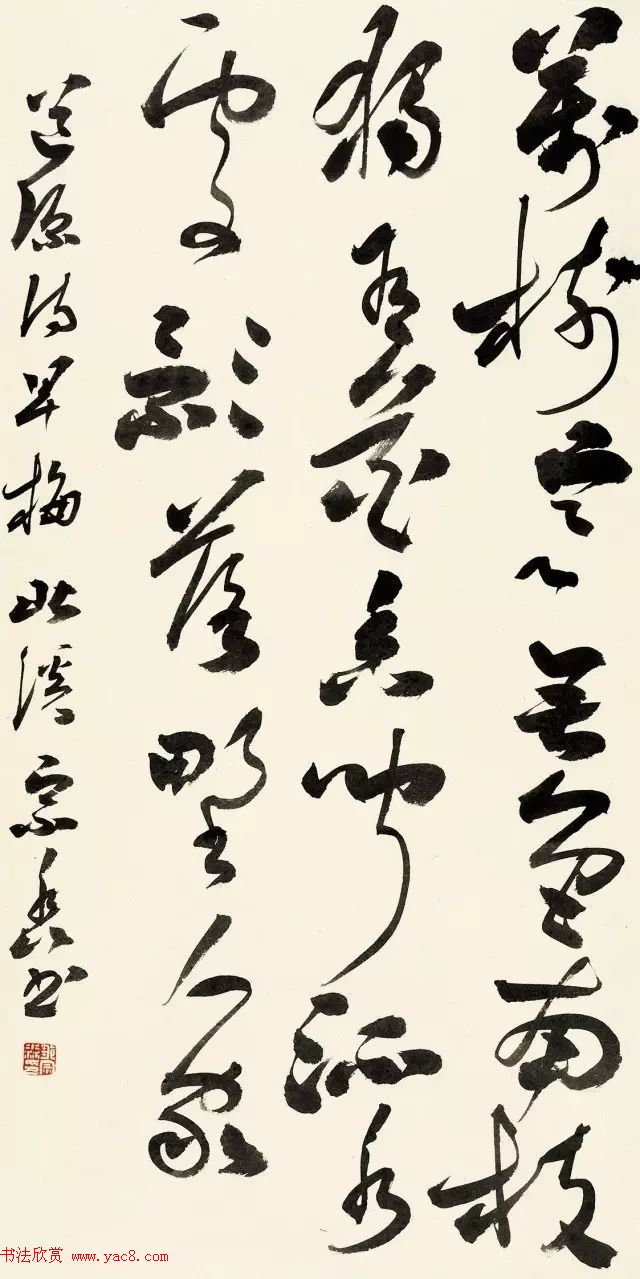 萬樹寒無色南枝
獨有花香聞流水
處影落野人家
道源诗早梅 溪宗书
书法欣赏 www.yac8.com